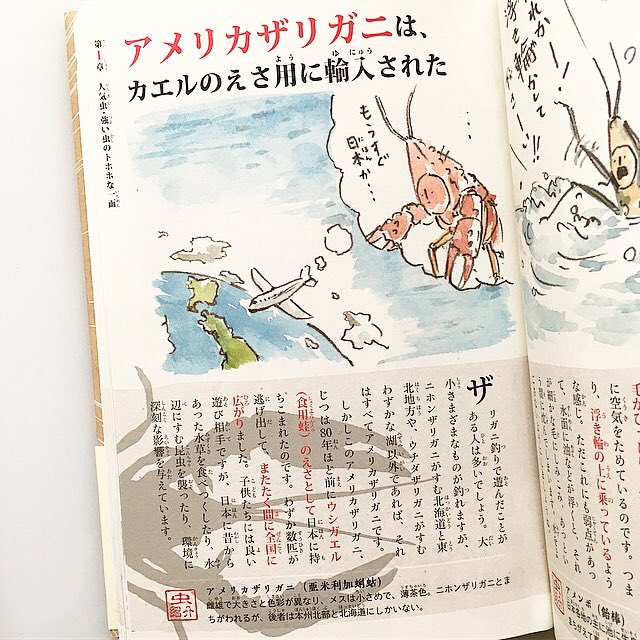 第1章 人気虫・強い虫のトホホな一面
アメリカザリガニは、
カエルのえさ用に輸入された
もうすぐ
日本か…
…
ザリガニ釣りで遊んだことが
ある人は多いでしょう。大
小さまざまなものが釣れますが、
ニホンザリガニがすむ北海道と東
北地方や、ウチダザリガニがすむ
わずかな湖以外であれば、それ
はすべてアメリカザリガニです。
しかしこのアメリカザリガニ、
じつは80年ほど前にウシガエル
(食用蛙)のえさとして日本に持
ちこまれたのです。わずか数匹が
逃げ出して、またたく間に全国に
広がりました。子供たちには良い
遊び相手ですが、日本に昔から
あった水草を食べつくしたり、水
辺にすむ昆虫を襲ったり、環境に
深刻な影響を与えています。
虫の紹介
アメリカザリガニ(亜米利加蝲蛄)
雌雄で大きさと色彩が異なり、メスは小さめで、薄茶色。ニホンザリガニとま
ちがわれるが、後者は本州北部と北海道にしかいない。
に空気をためているのです。
り、浮き輪の上に乗っているよう
な感じ。ただこれにも弱点があっ
て、水面に油などが浮くと、それ
アメンボ(飴棒)